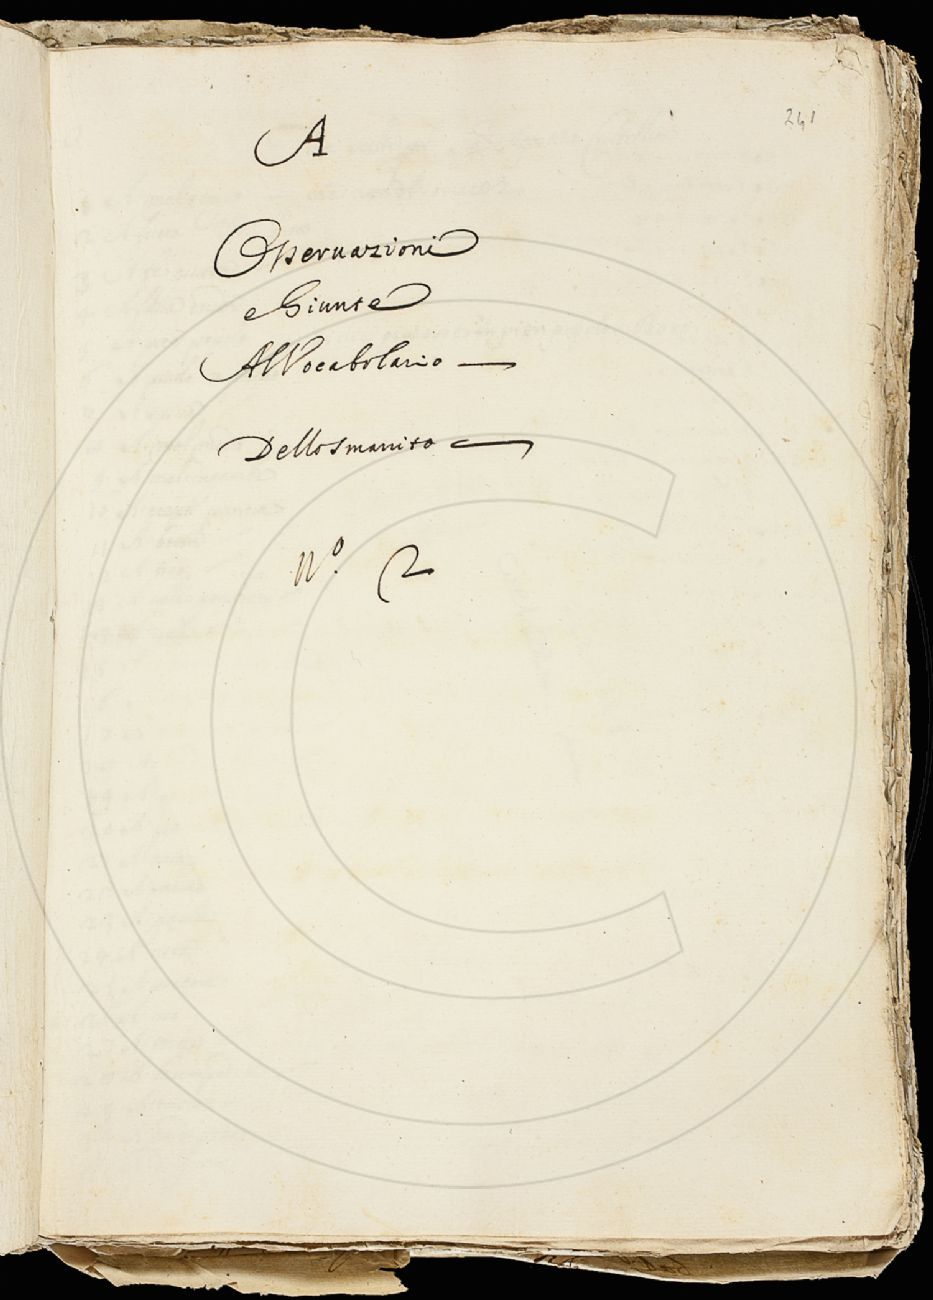 241
A
Osseruazioni
e Giunte
Al Vocabolario
Dello Smarrito
N.º 2